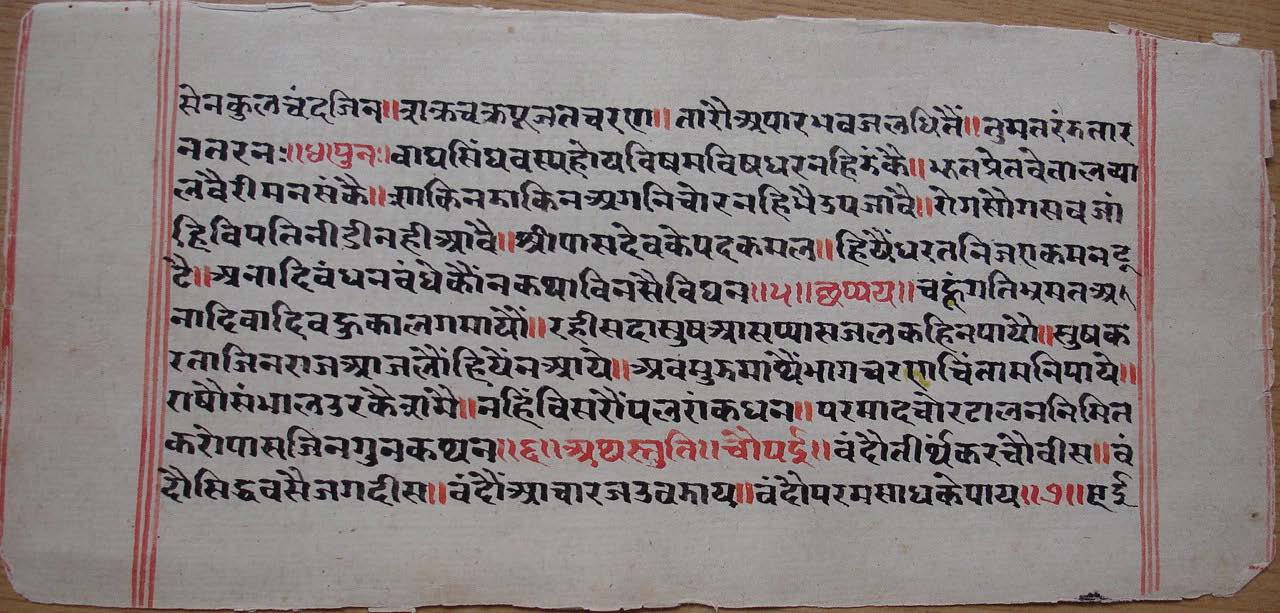 सेनकुलचंदजिन॥शक्रचक्रपूजतचरण॥तारौअपारभवजलधितैं॥तुमतरंडतार
नतरन॥४॥पुनः॥वाघसिंघवस्यहौयविषमविषधरनहिडंकै॥भूतप्रेतवेतालव्या
लवैरीमनसंकै॥शाकिनडाकिनअगनिचोरनहिभैउपजावै॥रोगसोगसवजां
हिविपतिनीडीनहीआवै॥श्रीपासदेवकेपदकमल॥हियैंधरतनिजएकमनटू
टै॥अनादिवंधनवंधेकौंनकथाविनसैविघन॥५॥छप्पय॥चहूंगतिभ्रमतअ
नादिवादिवहुकालगमायौं॥रहीसदासुषआसप्यासजलकहिनपायौ॥सुषक
रताजिनराजआजलौंहियेंनआये॥अवमुझमाथैंभागचरणचिंतामनिपाये॥
राषौसंभालउरकैशमै॥नंहिंविसरौंपलरांकधन॥परमादचोरटालननिमित
करोपासजिनगुनकथन॥६॥अथस्तुति॥चौपई॥वंदौतीर्थंकरचौवीस॥वं
दौसिद्धवसैजगदीस॥वंदौंआचारजउवझाय॥वंदौपरमसाधकेपाय॥७॥सई